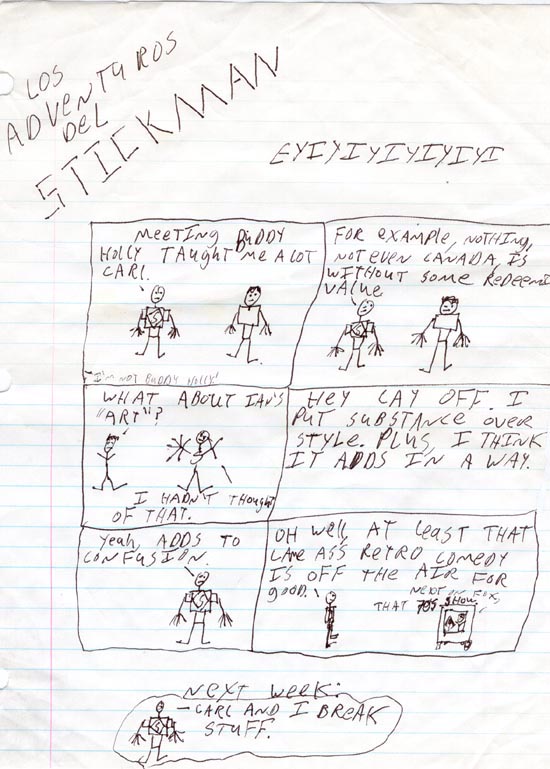 LOS
ADVENTUROS
DEL
STICKMAN
EYIYIYIYIYIYI
MEETING BUDDY
HOLLY TAUGHT ME A LOT
CARL.
"I'M NOT BUDDY HOLLY."
FOR EXAMPLE, NOTHING,
NOT EVEN CANADA, IS
WITHOUT SOME REDEEMI
VALUE
WHAT ABOUT IAN'S
"ART"?
I HADN'T THOUGHT
OF THAT.
HEY LAY OFF. I
PUT SUBSTANCE OVER
STYLE. PLUS, I THINK
IT ADDS IN A WAY.
Yeah, ADDS TO
CONFUSION.
OH WELL, AT LEAST THAT
LAME ASS RETRO COMEDY
IS OFF THE AIR FOR
good.
NEXT ON FOX,
THAT 70S SHOW
NEXT WEEK:
-CARL AND I BREAK
STUFF.